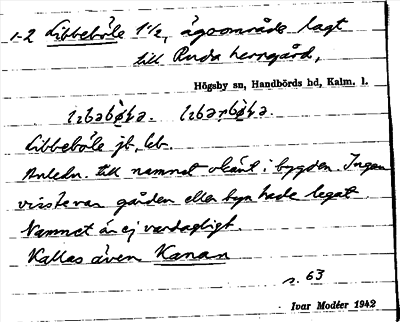 1-2 Libbeböle 1 1/2, ägoområde lagt
till Ruda herrgård,
Högsby sn, Handbörds hd, Kalm. l.
Libbeböle jb, kb.
Anledn. till namnet okänt i bygden. Ingen
visste var gården eller byn hade legat.
Namnet är ej vardagligt.
Kallas även Kanan
s. 63
Ivar Modéer 1942